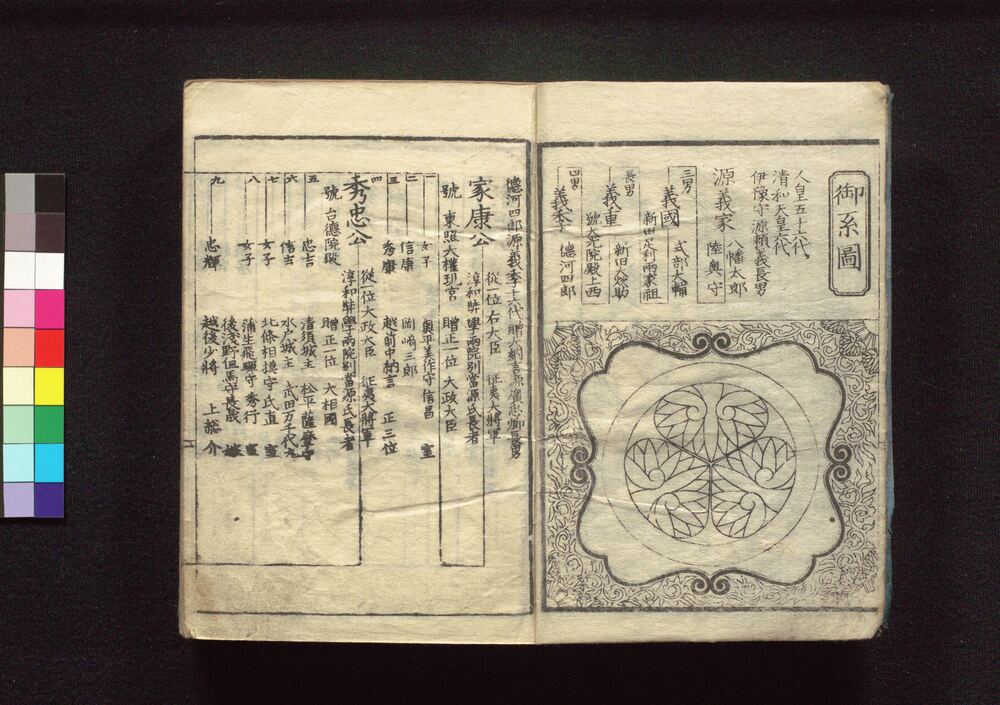 御系圖
人皇五十六代
清和天皇六代
伊豫守源頼義長男
源義家
八幡太郎
陸奥守
三男
義國
式部大輔
新田足利兩家祖
長男
義重
新田大炊助
號大光院殿上西
四男
義季
德河四郎
德河四郎源義季十六代贈大納言源廣忠卿長男
家康公
從一位右大臣 征夷大將軍
淳和奨學兩院別當源氏長者
號 東照大權現宮 贈正一位 大政大臣
一 女子 奥平美作守信昌 室
二 信康 岡崎三郎
三 秀康 越前中納言 正三位
四
秀忠公
從一位大政大臣 征夷大將軍
淳和奨學兩院別當源氏長者
號 台德院殿 贈正一位 大相國
五 忠吉 清須城主 松平薩摩守
六 信吉 水戸城主 武田万千代丸
七 女子 北條相摸守氏直 室
八 女子 蒲生飛驒守秀行 室
後淺野但馬守長晟 嫁
九 忠輝 越後少將 上総介